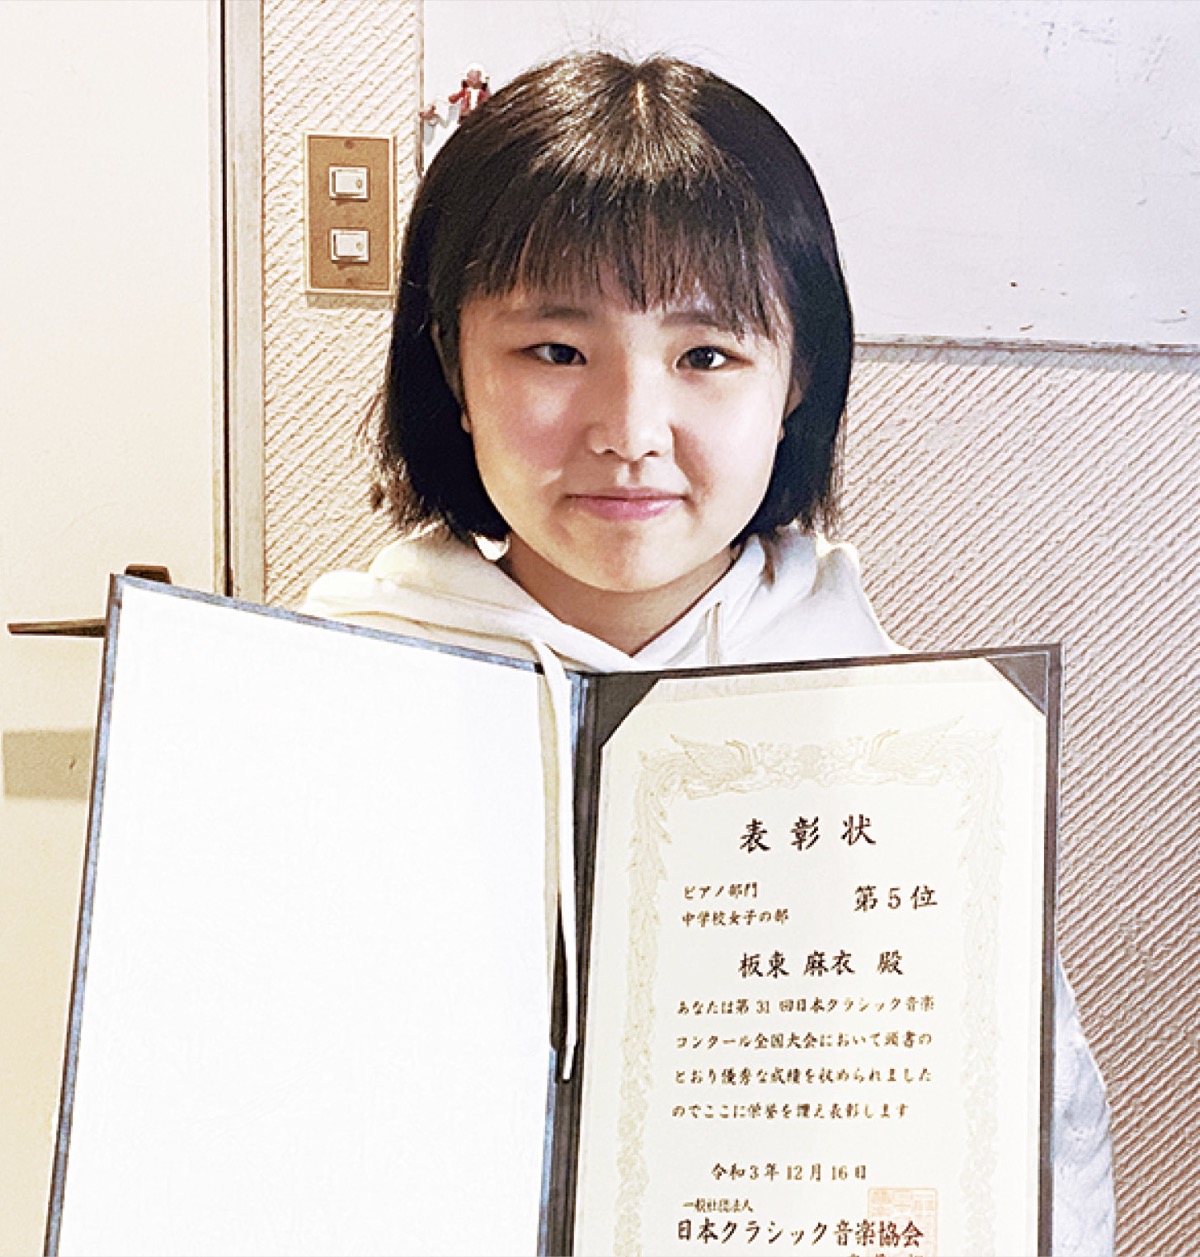 表彰状
ピアノ部門
中学校女子の部
第5位
板東 麻衣 殿
あなたは第 31 回日本クラシック音楽
コンクール全国大会において頭書の
とおり優秀な成績を収められました
のでここに栄誉を讃え表彰します
令和3年12月16日
一般社団法人
日本クラシック音楽協会